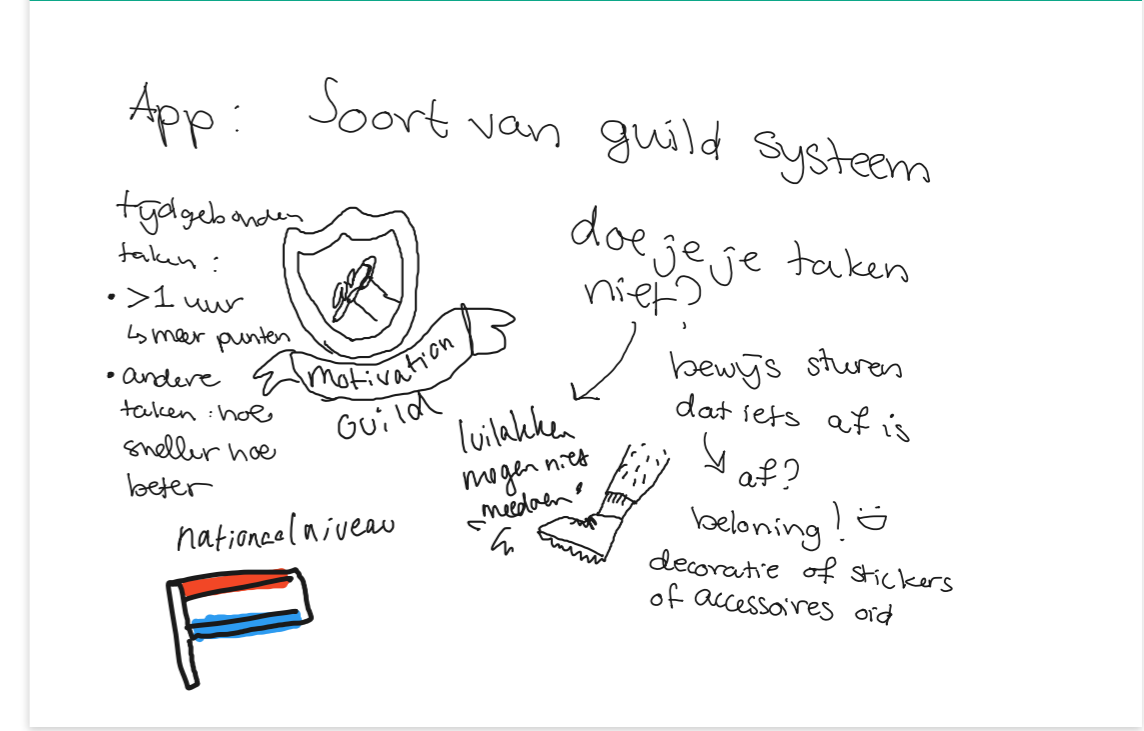 App: Soort van guild systeem
tijdgebonden
taken:
• >1 uur
↳ meer punten
• andere
taken: hoe
sneller hoe
beter
Motivation
Guild
nationaal niveau
doe je je taken
niet?
luilakken
mogen niet
meedoen!
bewijs sturen
dat iets af is
af?
beloning! :D
decoratie of stickers
of accessoires oid